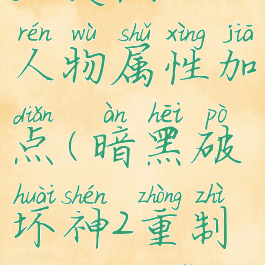 rén wù shǔ xìng jiā
人物属性加
diǎn àn hēi pò
点(暗黑破
huài shén zhòng zhì
坏神2重制